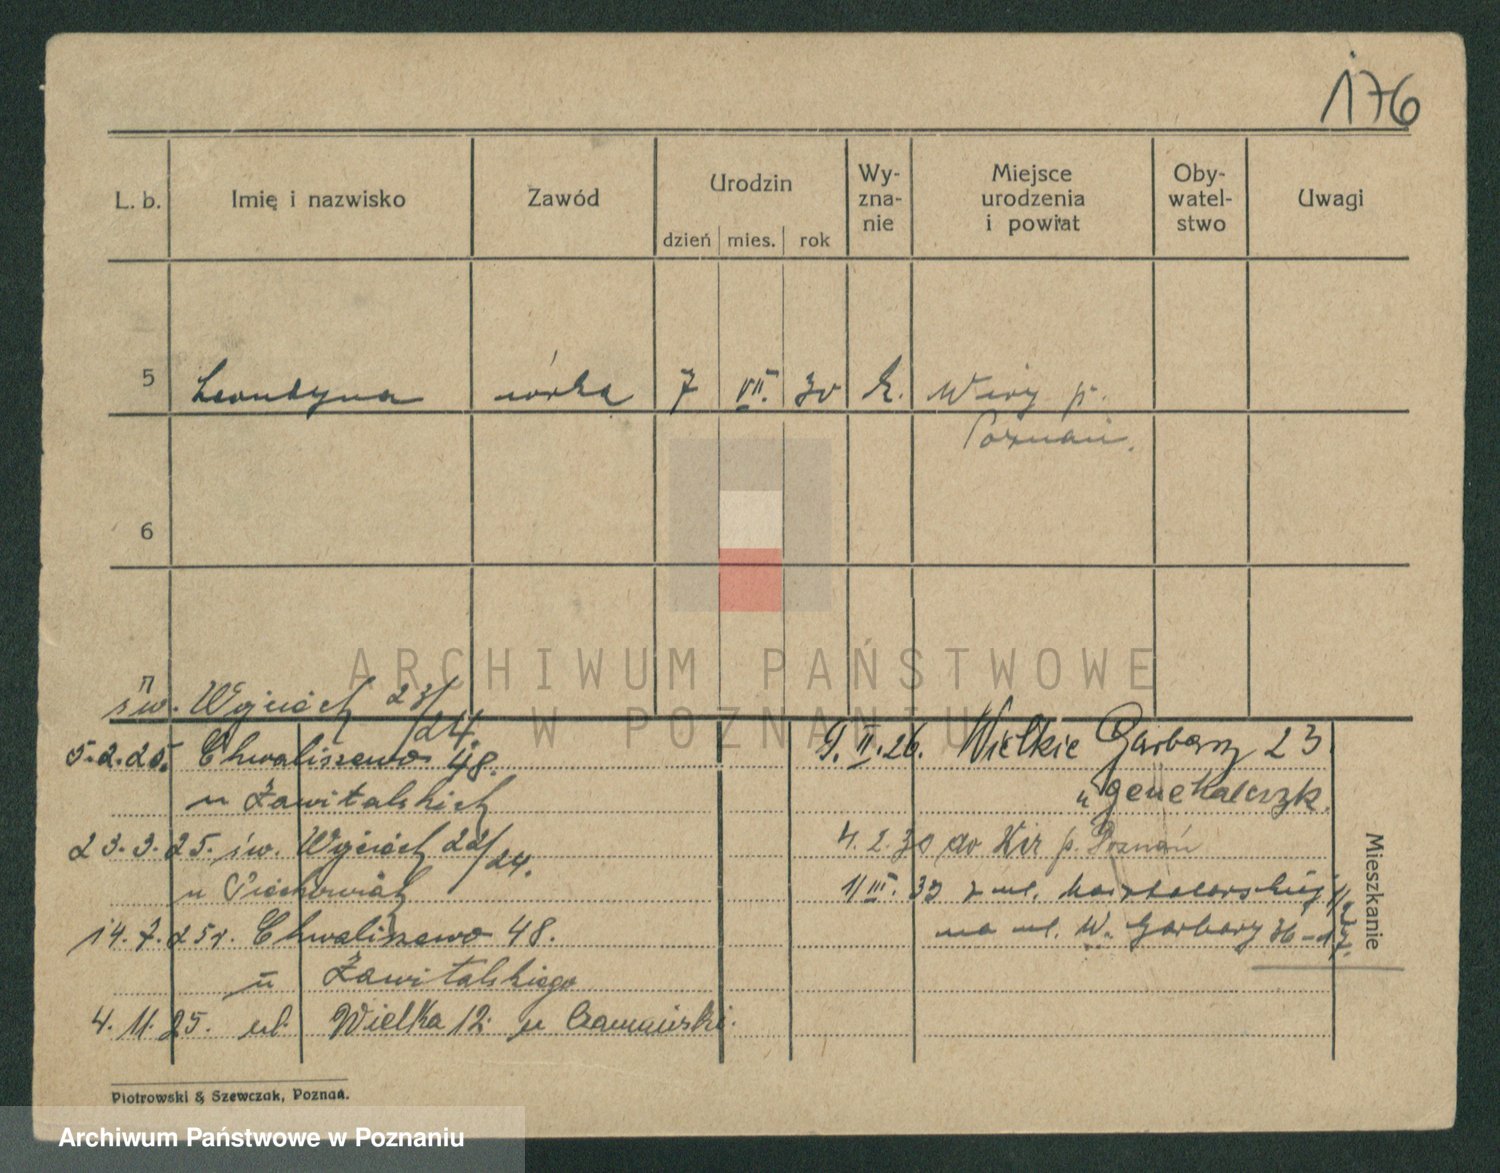 176
L. b.
Imię i nazwisko
Zawód
Urodzin
dzień mies. rok
Wy-
zna-
nie
Miejsce
urodzenia
i powiat
Oby-
watel-
stwo
Uwagi
5 Leondyna córka 7 VII. 30 k. Wiry p.
Poznań.
6
ARCHIWUM PAŃSTWOWE
W POZNANIU
św. Wojciech 23/24.
5.2.25. Chwaliszewo 48.
u Zawitalskich
23.3.25. św. Wojciech 22/24.
u
14.7.25r. Chwaliszewo 48.
u Zawitalskiego
4.11.25. ul. Wielka 12. u
9.II.26. Wielkie Garbary 23
u
4.2.30 do p. Poznań
1/III.33 z ul.
na ul. W. Garbary 36-17.
Mieszkanie
Piotrowski & Szewczak, Poznań.
Archiwum Państwowe w Poznaniu